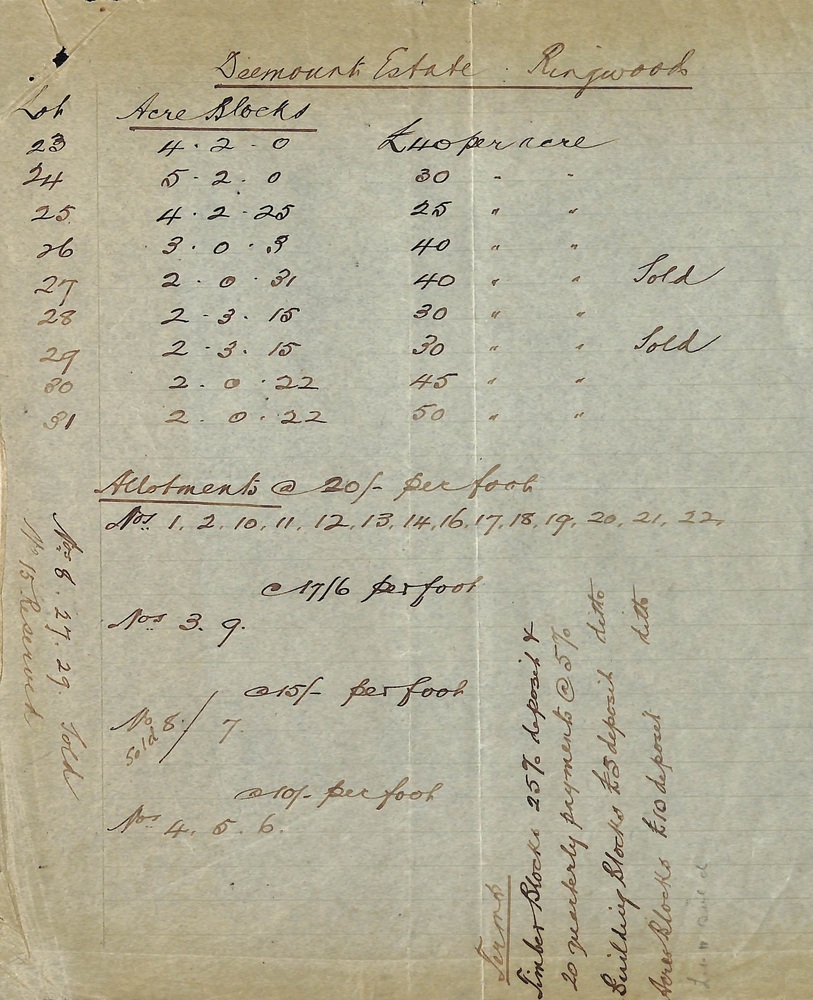 Deemount Estate . Ringwood
Lot Acre Blocks
23 4 . 2 . 0 £40 per acre
24 5 . 2 . 0 30 " "
25 4 . 2 . 25 25 " "
26 3 . 0 . 3 40 " "
27 2 . 0 . 31 40 " " Sold
28 2 . 3 . 15 30 " "
29 2 . 3 . 15 30 " " Sold
30 2 . 0 . 22 45 " "
31 2 . 0 . 22 50 " "
Allotments @ 20/- per foot
Nos. 1, 2, 10, 11, 12, 13, 14, 16, 17, 18, 19, 20, 21, 22,
@ 17/6 per foot
Nos 3. 9.
@ 15/- per foot
No 8. / 7.
Sold
@ 10/- per foot
Nos 4. 5. 6.
Nos 8. 27. 29. Sold
No 15 Reserved
Terms
Timber Blocks 25% deposit &
20 quarterly payments @ 5%
Building Blocks £5 deposit ditto
Acres Blocks £10 deposit ditto